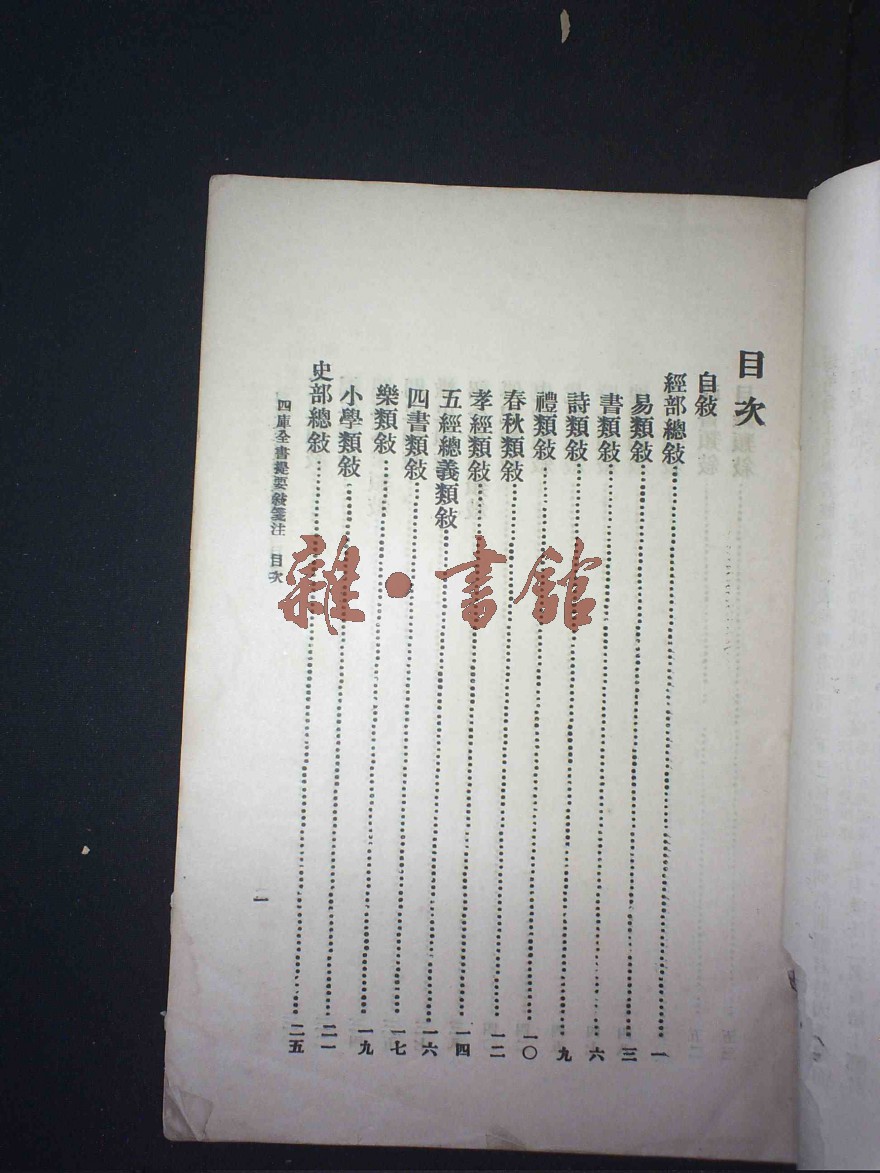 目次
自敘
經部總敘⋯⋯一
易類敘⋯⋯三
書類敘⋯⋯六
詩類敘⋯⋯九
禮類敘⋯⋯一〇
春秋類敘⋯⋯一二
孝經類敘⋯⋯一四
五經總義類敘⋯⋯一六
四書類敘⋯⋯一七
樂類敘⋯⋯一九
小學類敘⋯⋯二一
史部總敘⋯⋯二五
四庫全書提要敘箋注 目次
雜·書館